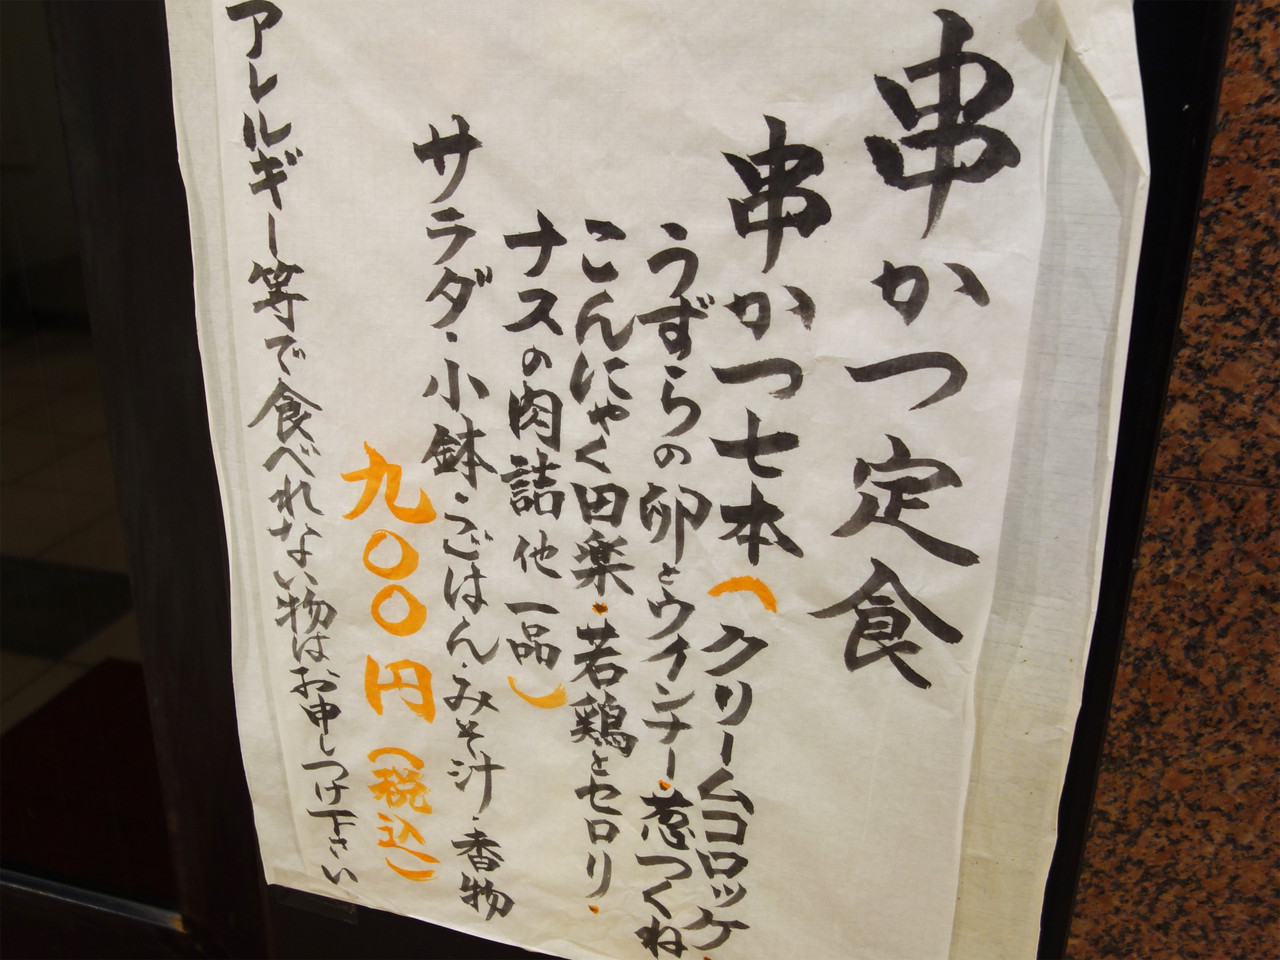 串かつ定食
串かつ七本(クリームコロッケ・
うずらの卵とウインナー・葱つくね
こんにゃく田楽・若鶏とセロリ・
ナスの肉詰他一品)
サラダ・小鉢・ごはん・みそ汁・香物
九〇〇円(税込)
アレルギー等で食べれない物はお申しつけ下さい